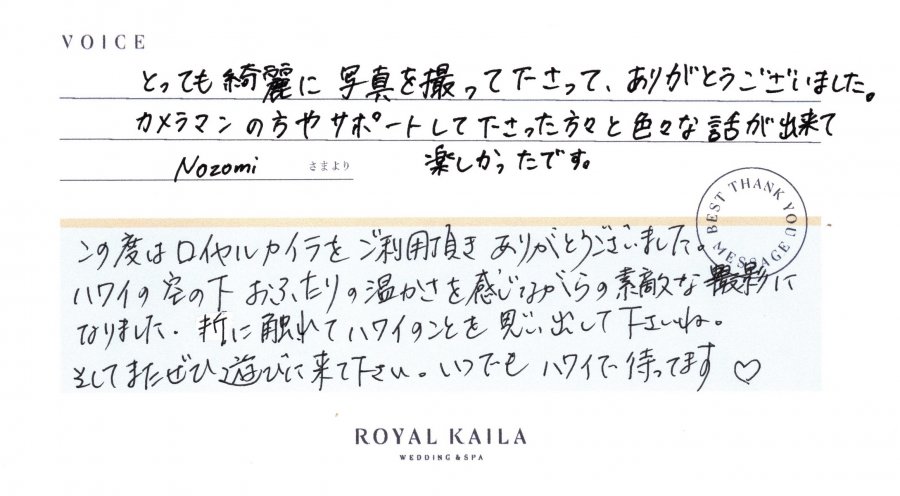 VOICE
とっても綺麗に写真を撮って下さって、ありがとうございました。
カメラマンの方やサポートして下さった方々と色々な話が出来て
楽しかったです。
Nozomi さまより
BEST THANK YOU MESSAGE
この度はロイヤルカイラをご利用頂きありがとうございました。
ハワイの空の下おふたりの温かさを感じながらの素敵な撮影に
なりました。折に触れてハワイのことを思い出して下さいね。
そしてまたぜひ遊びに来て下さい。いつでもハワイで待ってます♡
ROYAL KAILA
WEDDING & SPA